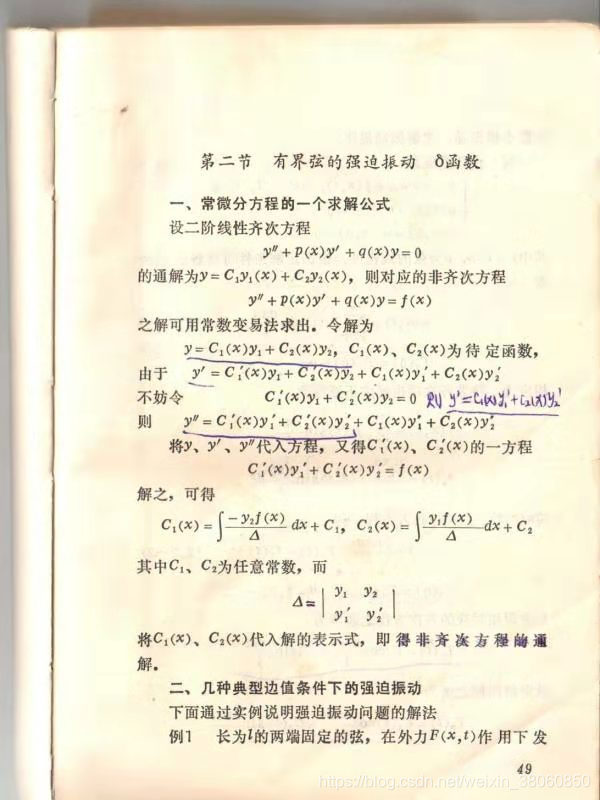 第二节 有界弦的强迫振动 δ函数
一、常微分方程的一个求解公式
设二阶线性齐次方程
y″+p(x)y′+q(x)y=0
的通解为y=C₁y₁(x)+C₂y₂(x)，则对应的非齐次方程
y″+p(x)y′+q(x)y=f(x)
之解可用常数变易法求出。令解为
y=C₁(x)y₁+C₂(x)y₂，C₁(x)、C₂(x)为待定函数，
由于 y′=C₁′(x)y₁+C₂′(x)y₂+C₁(x)y₁′+C₂(x)y₂′
不妨令 C₁′(x)y₁+C₂′(x)y₂=0 则 y′=C₁(x)y₁′+C₂(x)y₂′
则 y″=C₁′(x)y₁′+C₂′(x)y₂′+C₁(x)y₁″+C₂(x)y₂″
将y、y′、y″代入方程，又得C₁′(x)、C₂′(x)的一方程
C₁′(x)y₁′+C₂′(x)y₂′=f(x)
解之，可得
C₁(x)=∫ −y₂f(x)/Δ dx+C₁，C₂(x)=∫ y₁f(x)/Δ dx+C₂
其中C₁、C₂为任意常数，而
Δ=| y₁ y₂ |
| y₁′ y₂′ |
将C₁(x)、C₂(x)代入解的表示式，即得非齐次方程的通
解。
二、几种典型边值条件下的强迫振动
下面通过实例说明强迫振动问题的解法
例1 长为l的两端固定的弦，在外力F(x,t)作用下发
49
https://blog.csdn.net/weixin_38060850